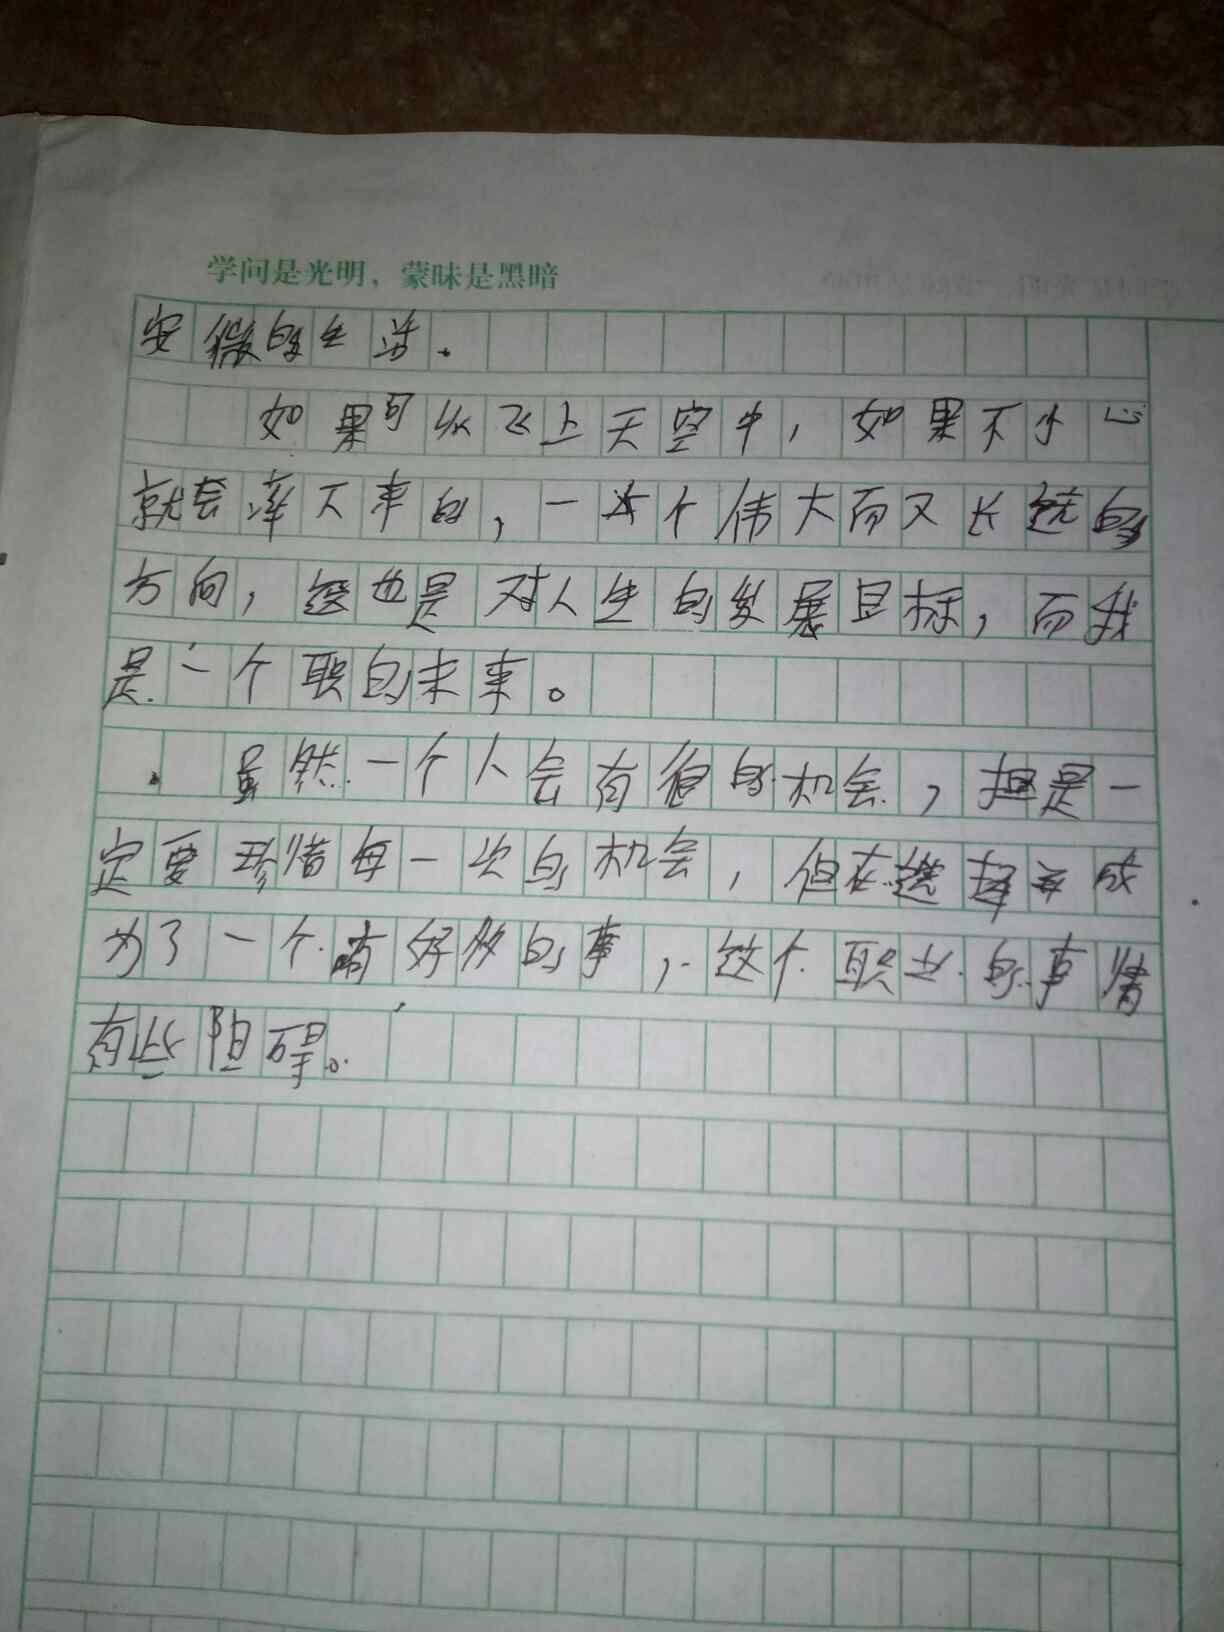 学问是光明，蒙昧是黑暗
安 的生活．
如果可以飞上天空中，如果不小心
就会 下来的，一这个伟大而又长 的
方向，这也是对人生的发展目标，而我
是一个职的未来。
虽然一个人会有很的机会，担是一
定要珍惜每一次的机会，但在选择 成
为了一个 好多的事，这个职业的事情
有些阻碍。